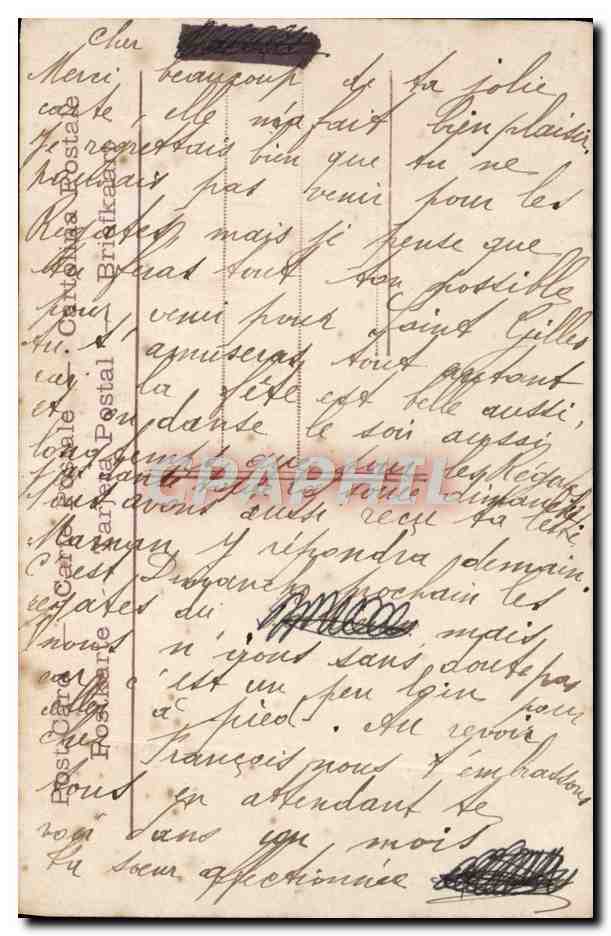 Cher
Merci beaucoup de ta jolie
carte, elle m'a fait bien plaisir.
Je regrettais bien que tu ne
pouvais pas venir pour les
Régates, mais je pense que
tu feras tout ton possible
pour venir pour Saint Gilles
tu t'amuseras tout autant
car la fête est belle aussi,
et on danse le soir aussi
longtemps que pour les Régates
dimanche
Nous avons aussi reçu ta lettre
Maman y répondra demain.
C'est Dimanche prochain les
régates du mais
nous n'irons sans doute pas
car c'est un peu loin pour
aller à pied. Au revoir
cher François nous t'embrassons
tous en attendant te
voir dans un mois
ta sœur affectionnée
Post Card — Carte Postale — Cartolina Postale
Postkarte — Tarjeta Postal — Briefkaart
CPAPHIL